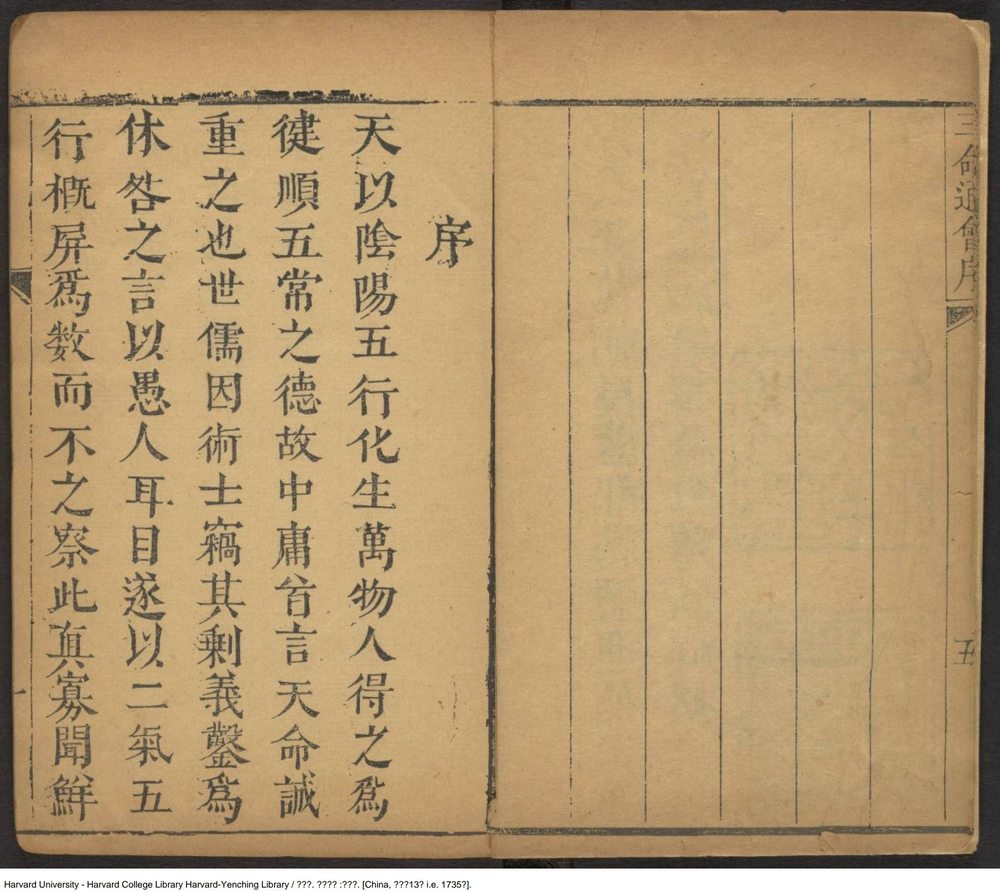 三命通會序
五
序
天以陰陽五行化生萬物人得之爲
健順五常之德故中庸首言天命誠
重之也世儒因術士竊其剩義鑿爲
休咎之言以愚人耳目遂以二氣五
行概屏爲数而不之察此真寡聞鮮
Harvard University - Harvard College Library Harvard-Yenching Library / ???. ???? :???. [China, ???13? i.e. 1735?].